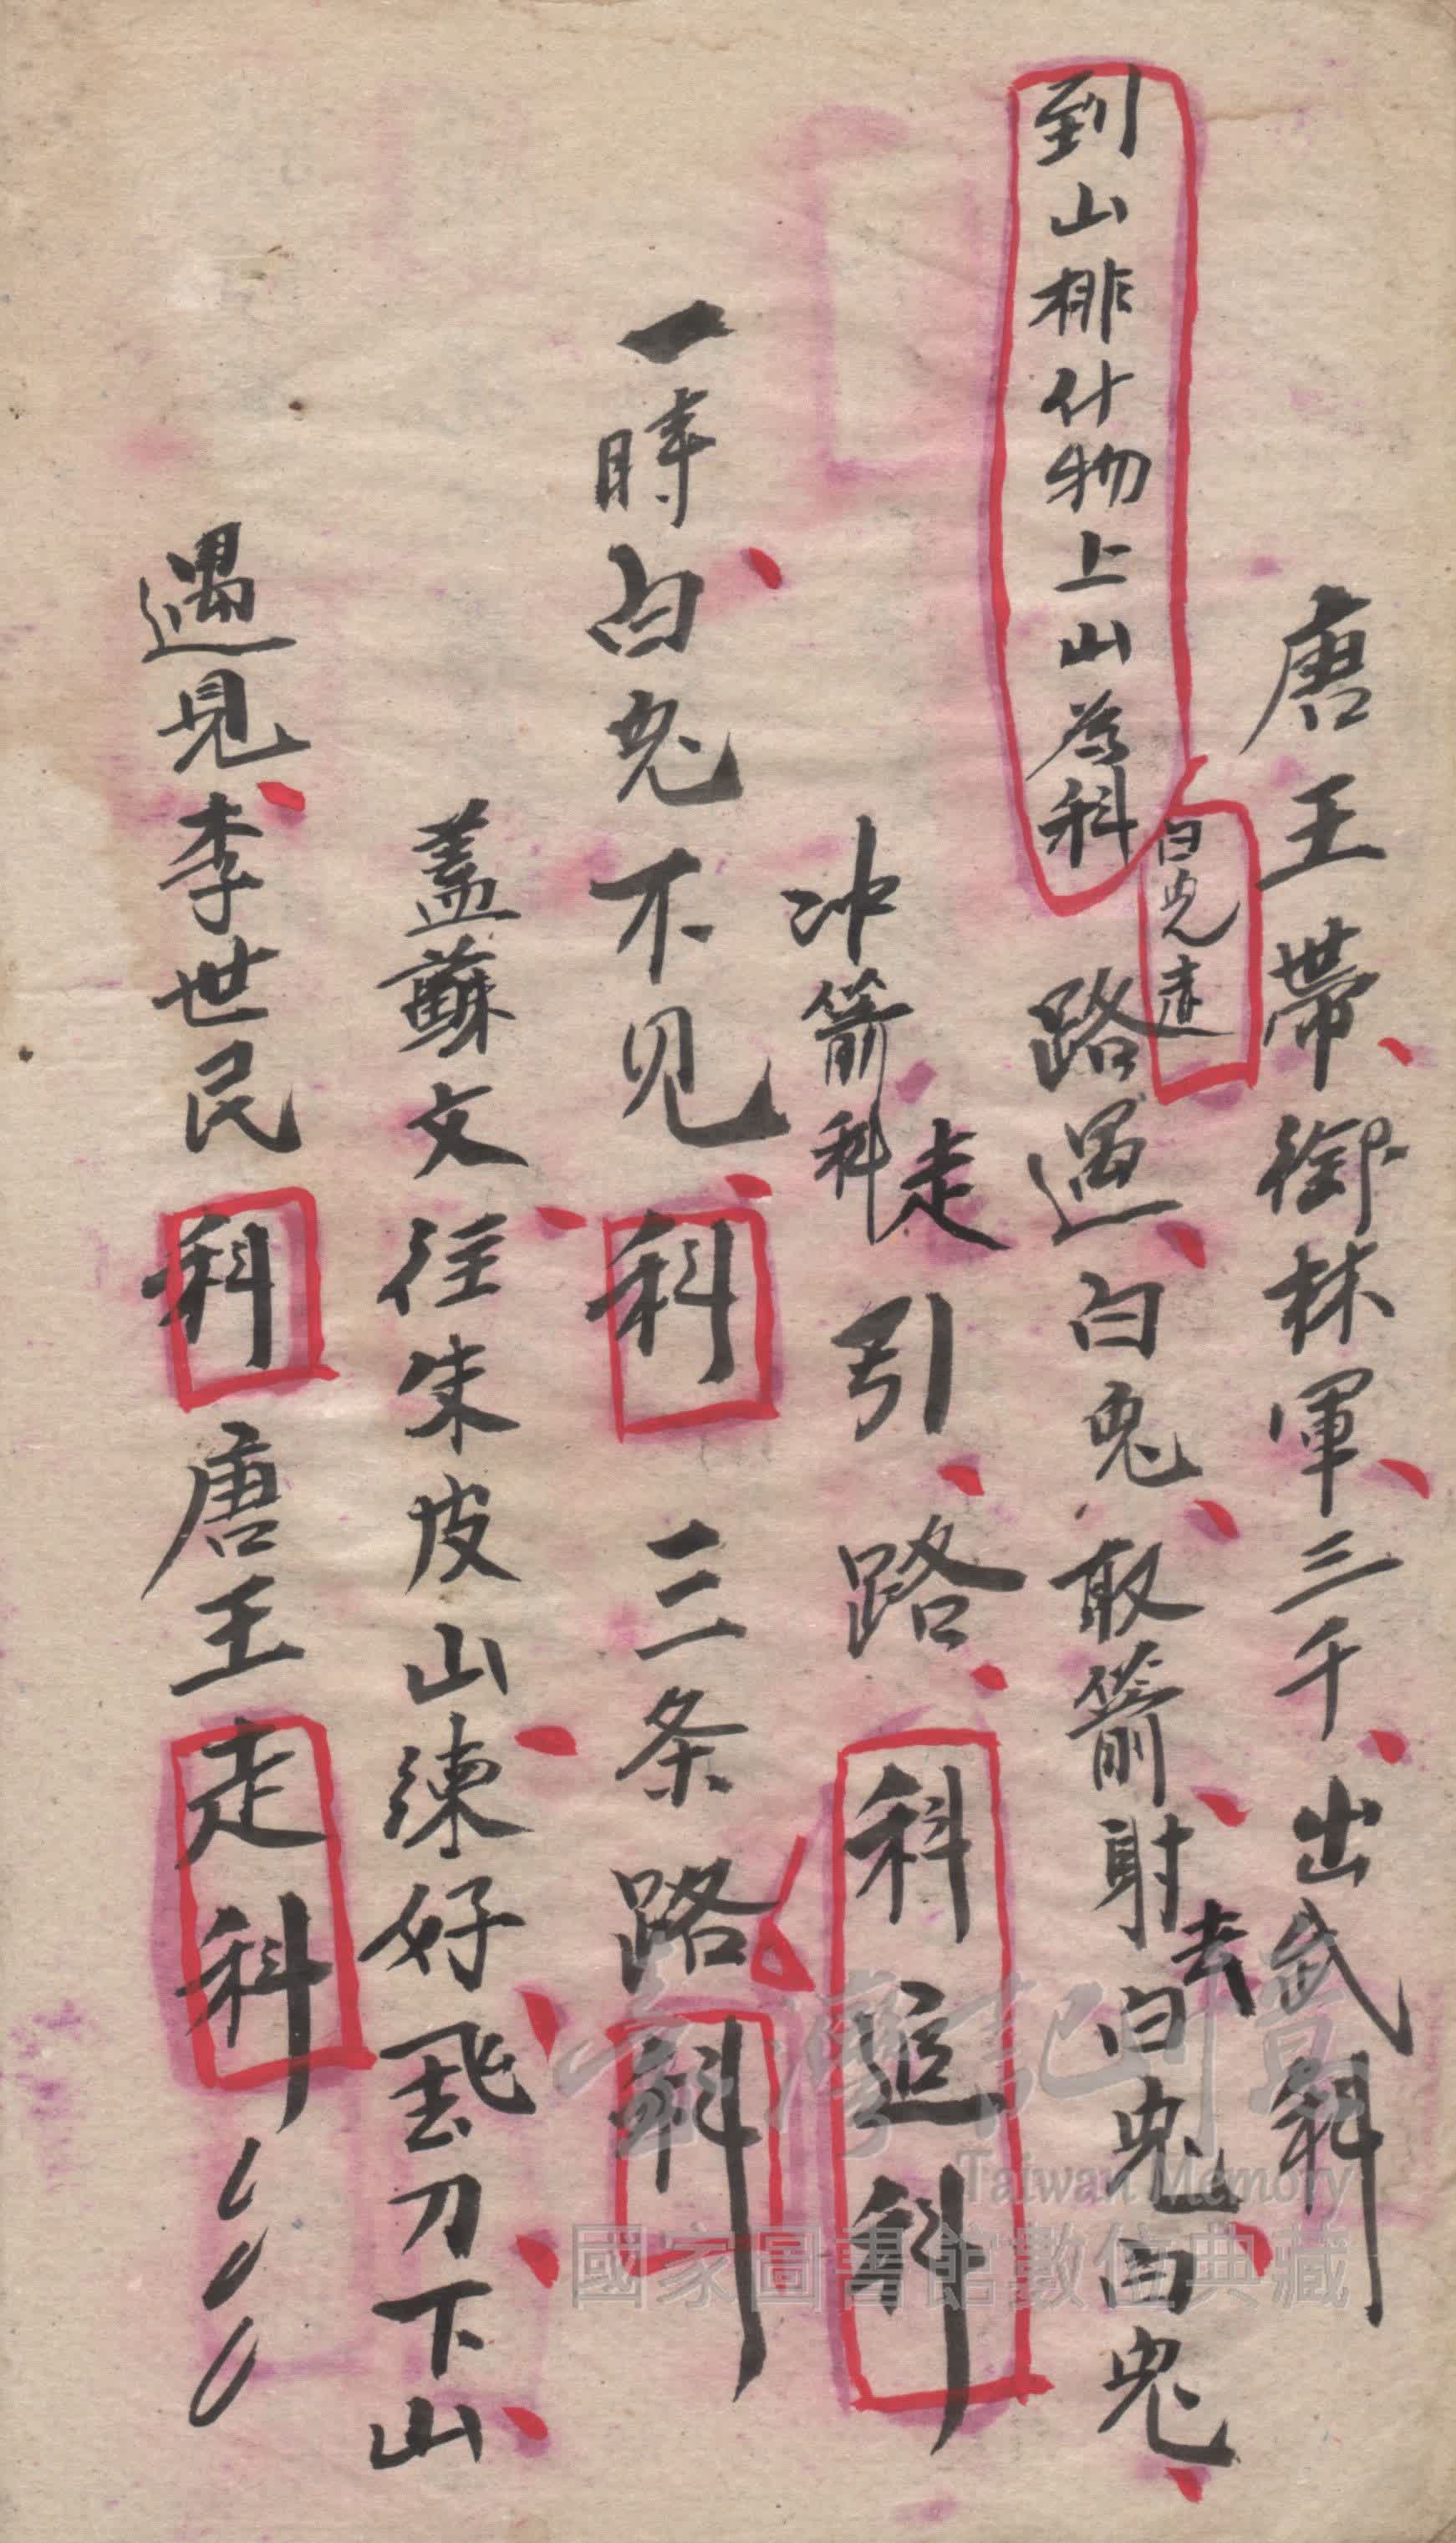 唐王帶御林軍三千出武科
白兎走
到山排什物上山為科
路遇白兎取箭射去白兎白兎
冲箭科走引路科追科
一時白兎不見科三条路科
蓋蘇文往朱皮山練好飛刀下山
遇見李世民科唐王走科
臺灣記憶
Taiwan Memory
國家圖書館數位典藏